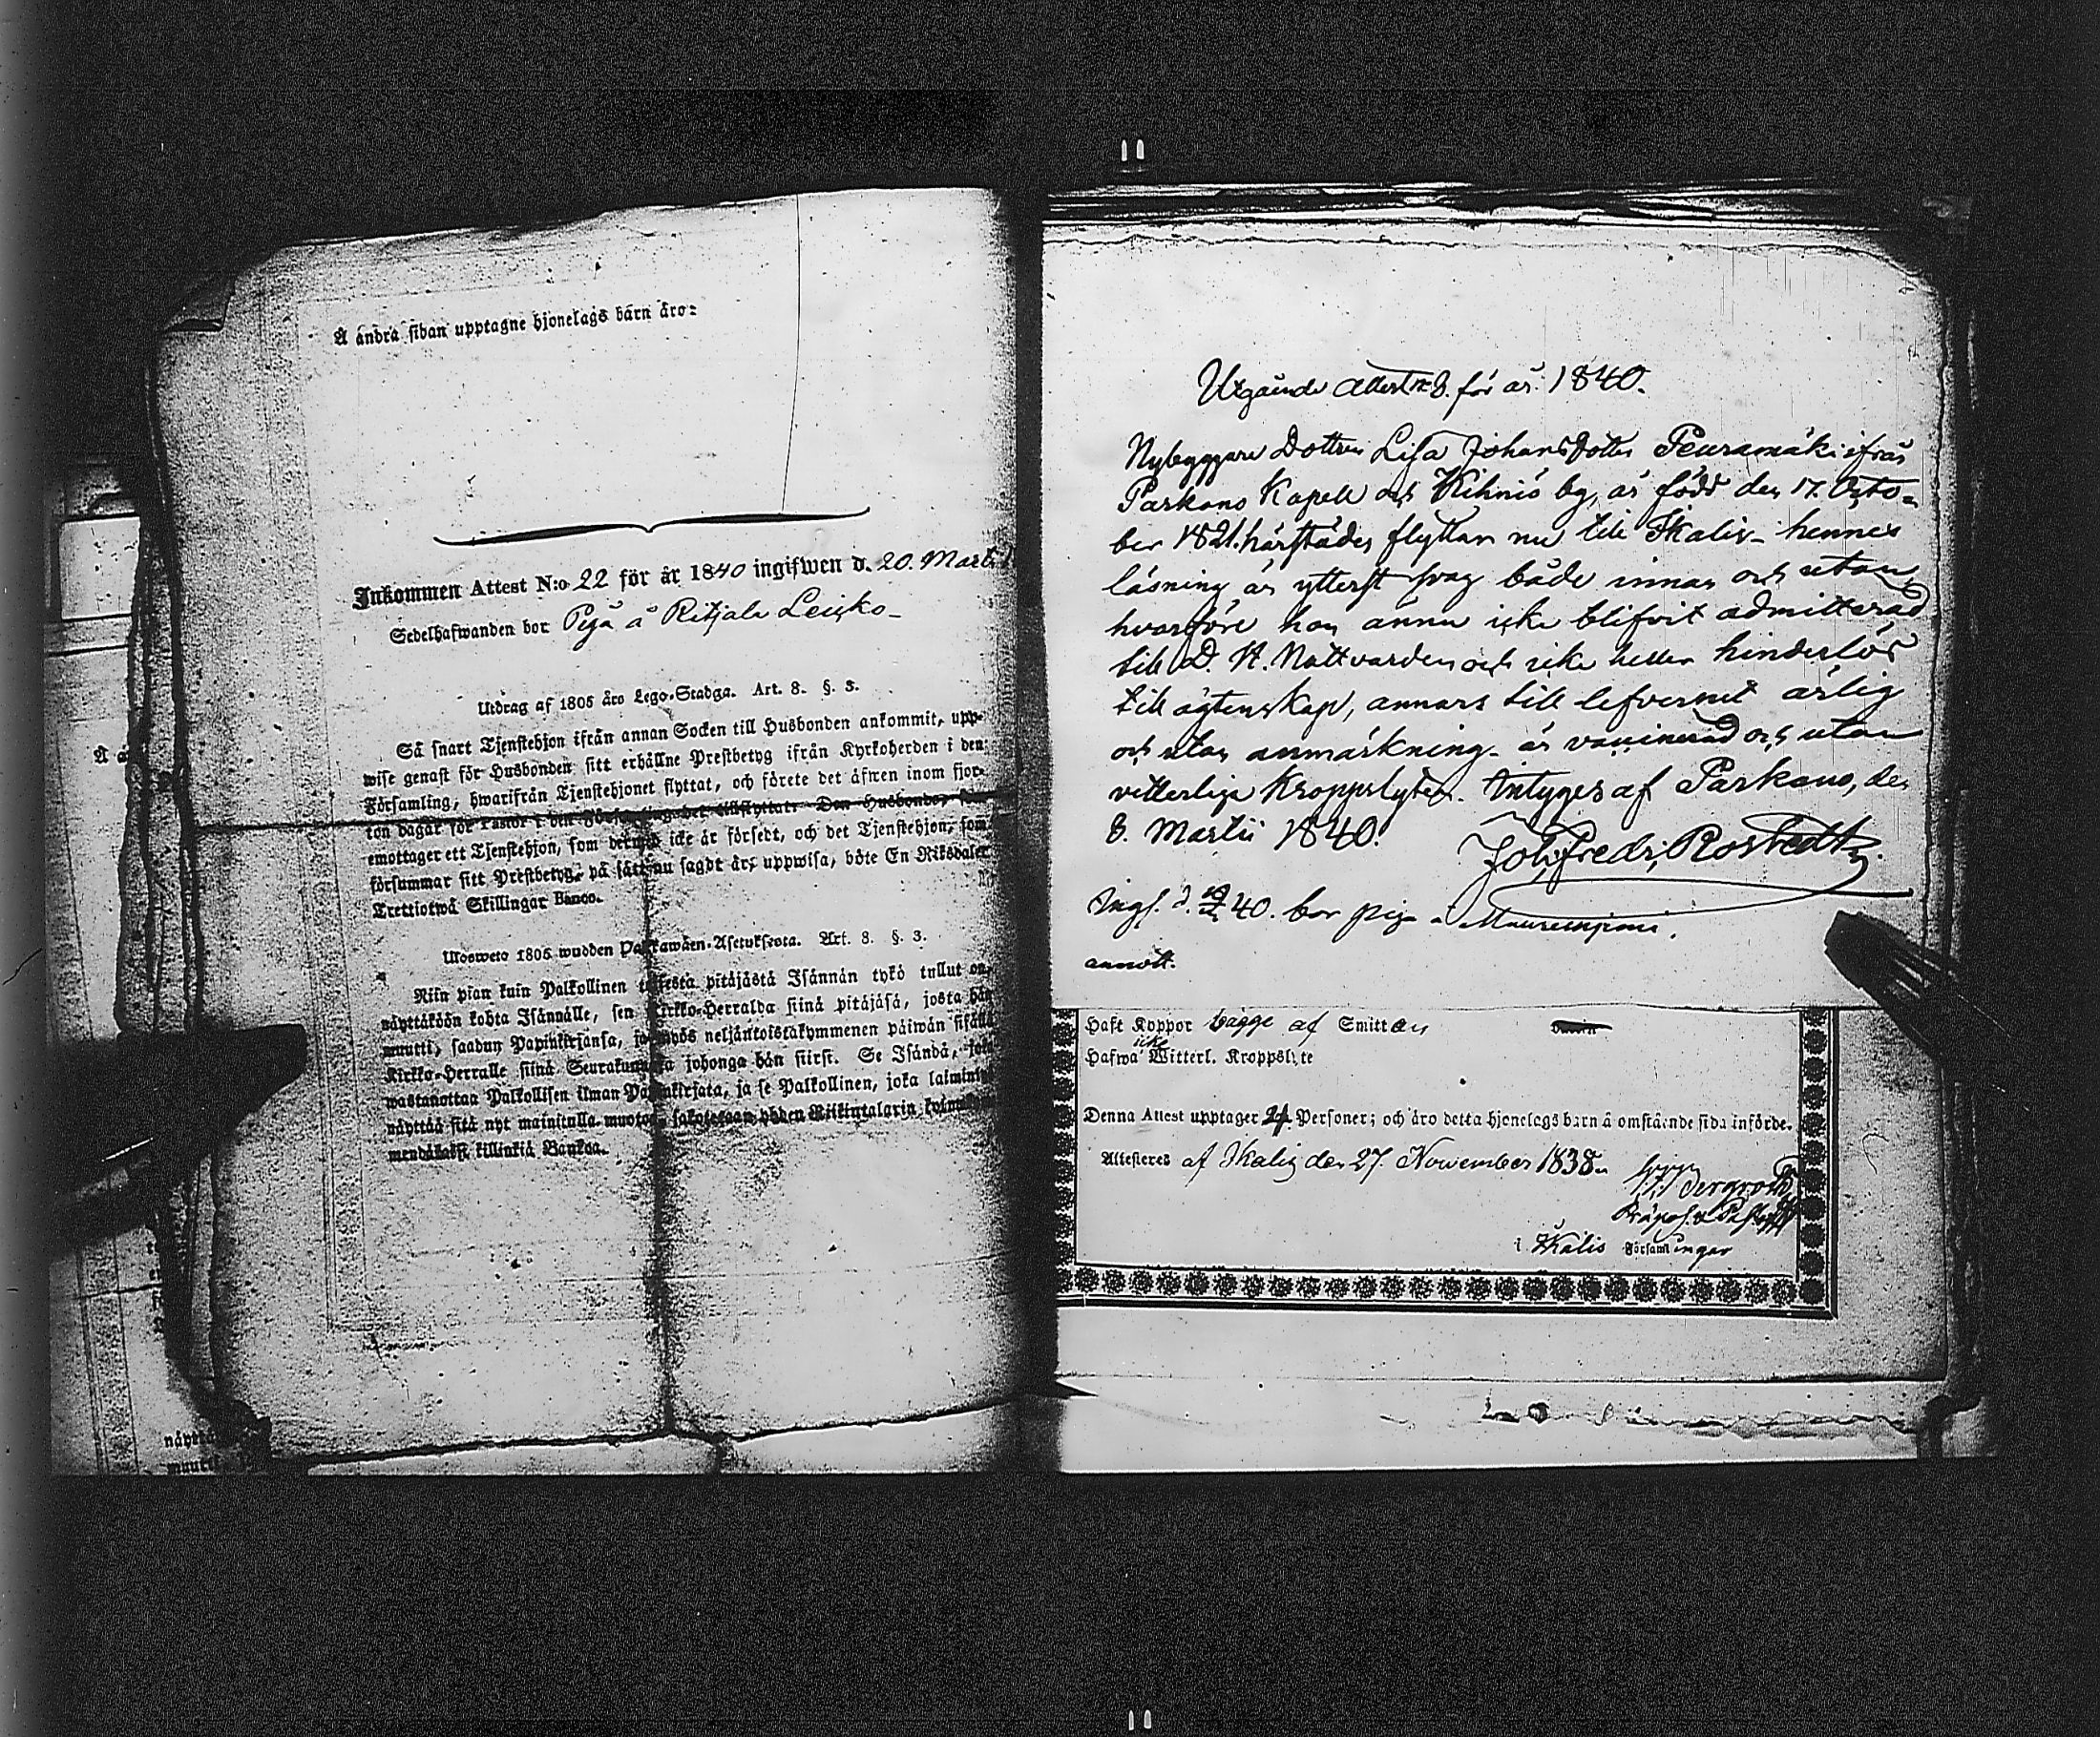 Å andra sidan upptagne hjonelags barn äro:
Inkommen Attest N:o 22 för år 1840 ingifwen d. 20. Martii
Sedelhafwanden bor Piga å Ritjala Leisko
Utdrag af 1805 åro Lego-Stadga. Art. 8. §. 3.
Så snart Tjenstehjon ifrån annan Socken till Husbonden ankommit, upp-
wise genast för Husbonden sitt erhållne Prestbetyg ifrån Kyrkoherden i den
Församling, hwarifrån Tjenstehjonet flyttat, och förete det äfwen inom fjor-
ton dagar för Pastor i den Församling det tillflyttat. Den Husbonde, som
emottager ett Tjenstehjon, som dermed icke är försedt, och det Tjenstehjon, som
försummar sitt Prestbetyg, på sätt nu sagdt är, uppwisa, böte En Riksdaler
Trettiotwå Skillingar Banco.
Ulosweto 1805 wuoden Palkawäen-Asetuksesta. Art. 8. §. 3.
Niin pian kuin Palkollinen toisesta pitäjästä Isännän tykö tullut on,
näyttäköön kohta Isännälle, sen Kirkko-Herralda siinä pitäjäsä, josta hän
muutti, saadun Papinkirjansa, ja myös neljäntoistakymmenen päiwän sisällä
Kirkko-Herralle siinä Seurakunnassa johonga hän siirst. Se Isändä, joka
wastanottaa Palkollisen ilman Papinkirjata, ja se Palkollinen, joka laimin
näyttää sitä nyt mainitulla muotoa, sakotetaan yhden Riikintalarin
killinkiä Bankoa.
Å a
näyttä
muutti
Utgående Attest N. 8. för år 1840.
Nybyggare Dottren Lisa Johansdotter Peuramäki ifrån
Parkano Kapell och Kihniö by, är född den 17. Octo-
ber 1821. härstädes flyttar nu till Ikalis - hennes
läsning är ytterst svag både innan och utan,
hvarföre hon ännu icke blifvit admitterad
till D. H. Nattvarden och icke heller hinderlös
till ägtenskap, annars till lefvernet ärlig
och utan anmärkning - är vaccinerad och utan
vitterliga kroppslyten. Intygas af Parkano, den
8. Martii 1840. Joh. Fredr. Rostedt
Ingf. d. 40. bor piga å
annott.
Haft Koppor bägge af Smittan
icke
Hafwa Witterl. Kroppslyte
Denna Attest upptager 2 Personer; och äro detta hjonelags barn å omstående sida införde.
Attesteres af Ikalis den 27. November 1838.
Bergroth
Präpos. & Past.
i Ikalis Församlingar